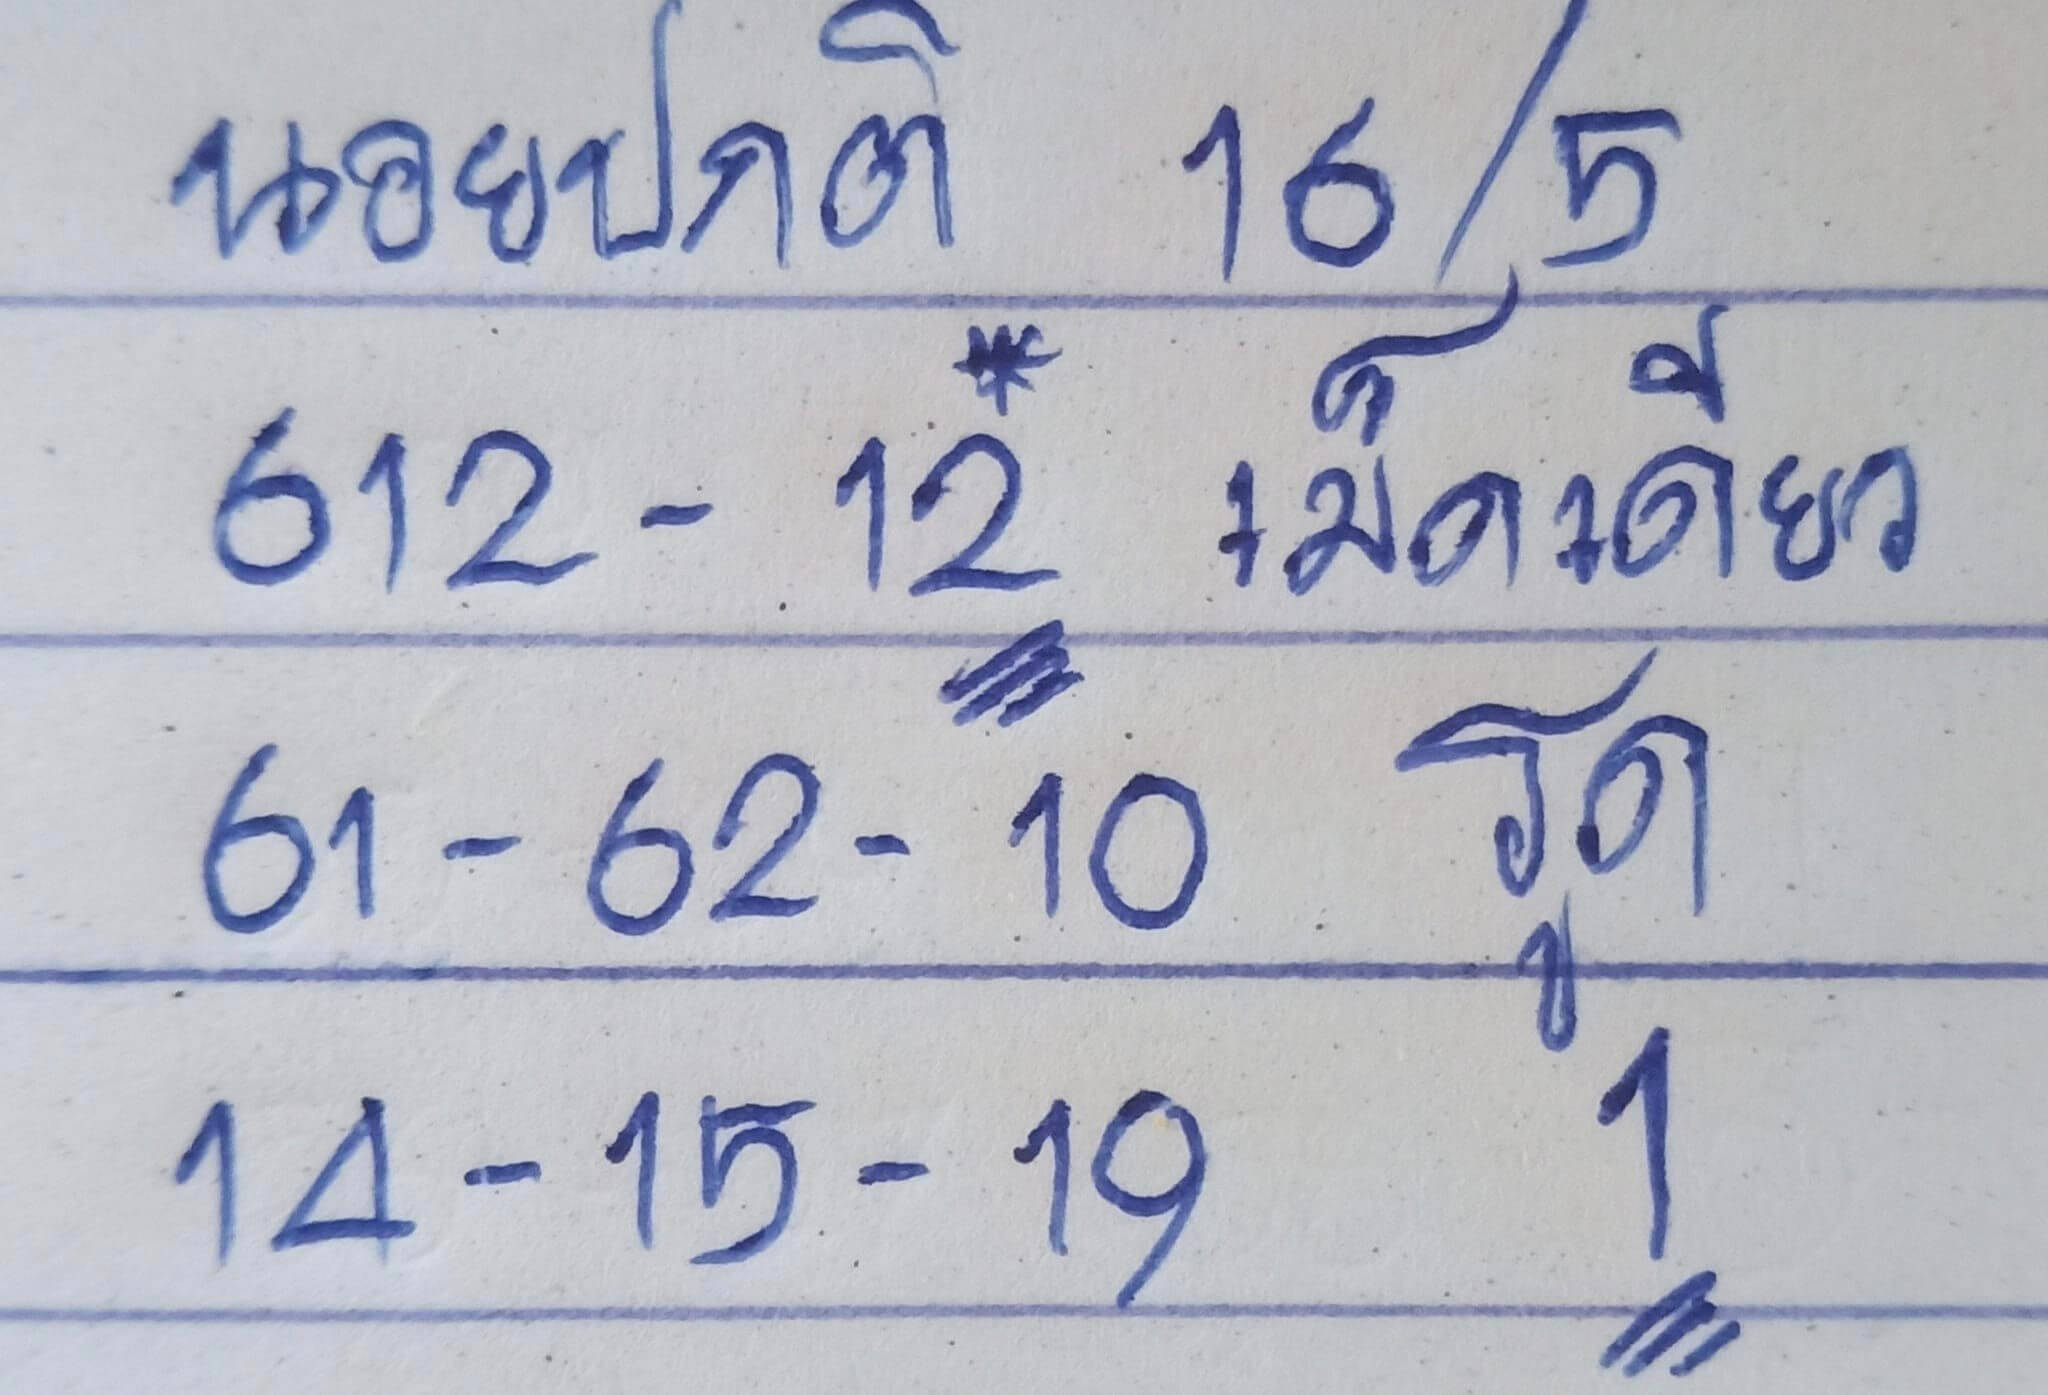 นอยปกติ 16/5
612 - 12* เม็ดเดียว
61 - 62 - 10 รูด
14 - 15 - 19 1